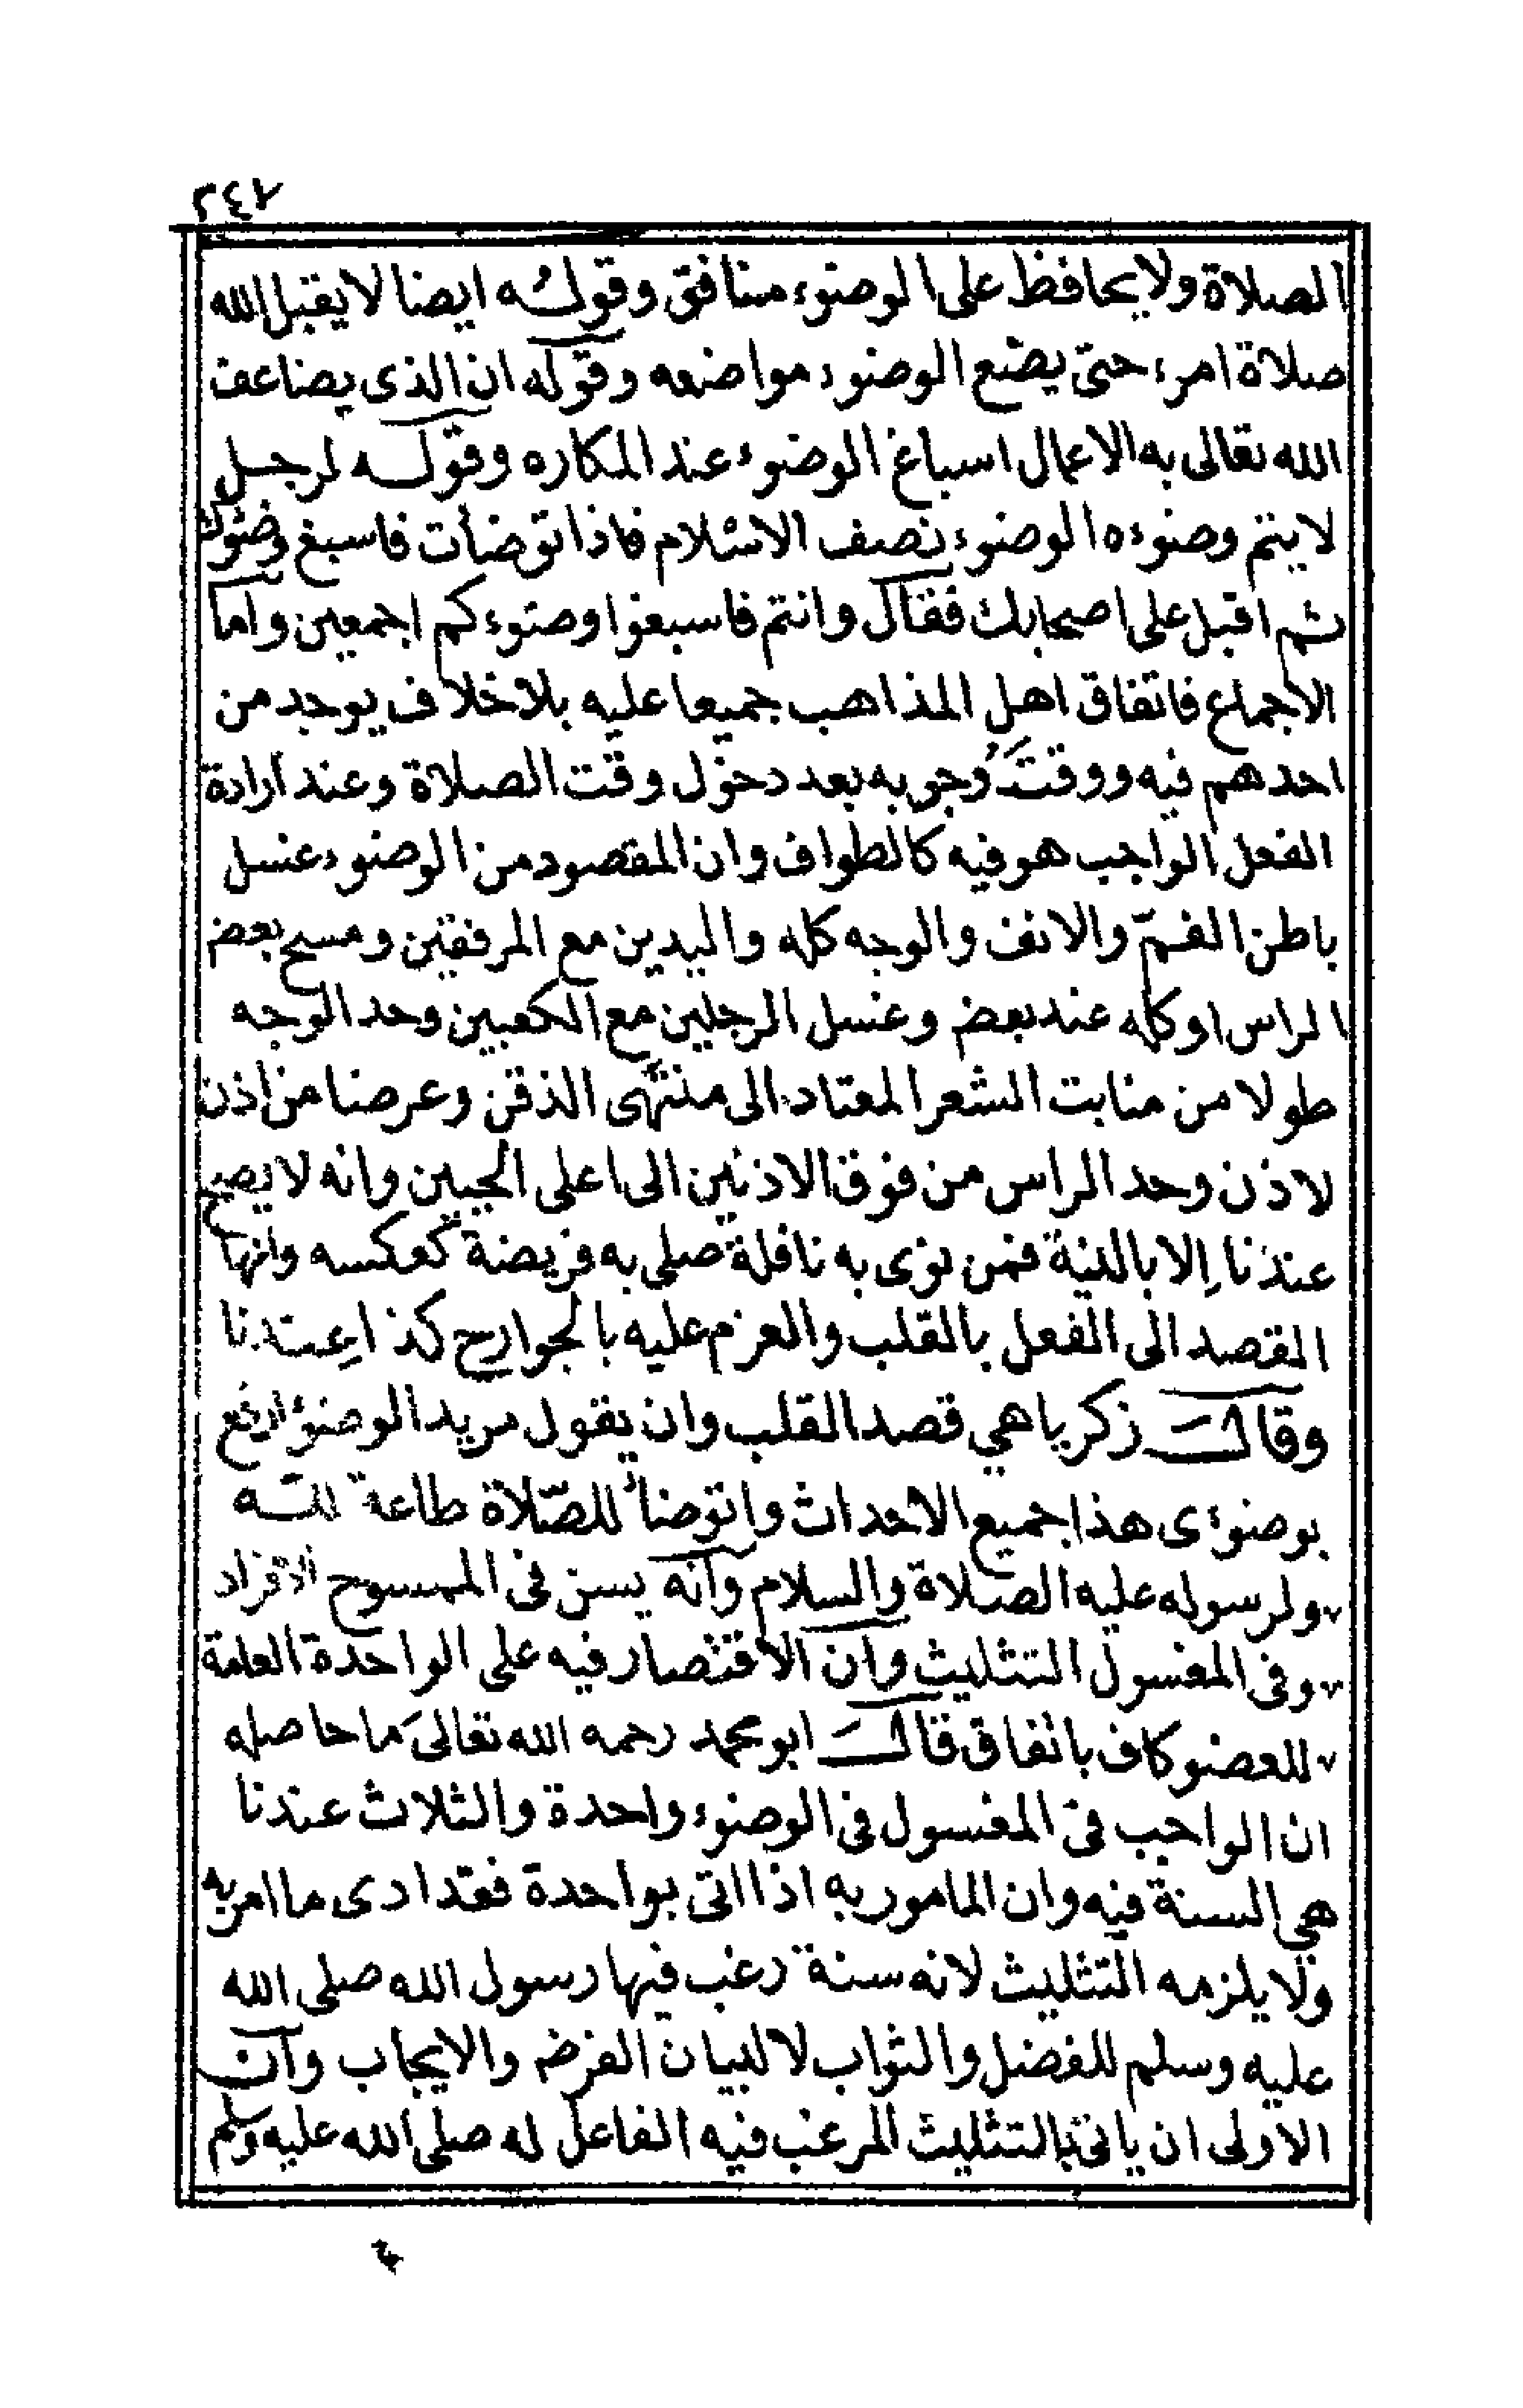 ٢٤٧
الصلاة ولا يحافظ على الوضوء منافق وقوله ايضا لا يقبل الله
صلاة امرء حتى يضع الوضوء مواضعه وقوله ان الذى يضاعف
الله تعالى به الاعمال اسباغ الوضوء عند المكاره وقوله لرجل
لا يتم وضوءه الوضوء نصف الاسلام فاذا توضأت فاسبغ وضوءك
ثم اقبل على اصحابك فقال وانتم فاسبغوا وضوءكم اجمعين واما
الاجماع فاتفاق اهل المذاهب جميعا عليه بلا خلاف يوجد من
احدهم فيه ووقت وجوبه بعد دخول وقت الصلاة وعند ارادة
الفعل الواجب هو فيه كالطواف وان المقصود من الوضوء غسل
باطن الفم والانف والوجه كله واليدين مع المرفقين ومسح بعض
الراس او كله عند بعض وغسل الرجلين مع الكعبين وحد الوجه
طولا من منابت الشعر المعتاد الى منتهى الذقن وعرضا من اذن
لاذن وحد الراس من فوق الاذنين الى اعلى الجبين وانه لا يصح
عندنا إلا بالنية فمن نوى به نافلة صلى به فريضة كعكسه وانها
القصد الى الفعل بالقلب والعزم عليه بالجوارح كذا عندنا
وقال زكريا هي قصد القلب وان يقول مريد الوضوء ارفع
بوضوءى هذا جميع الاحداث واتوضأ للصّلاة طاعة لله
ولرسوله عليه الصلاة والسلام وانه يسن فى الممسوح الافراد
وفى المغسول التثليث وان الاقتصار فيه على الواحدة العامة
للعضو كاف باتفاق قال ابو محمد رحمه الله تعالى ما حاصله
ان الواجب فى المغسول فى الوضوء واحدة والثلاث عندنا
هي السنة فيه وان المامور به اذا اتى بواحدة فقد ادى ما امر به
ولا يلزمه التثليث لانه سنة رغب فيها رسول الله صلى الله
عليه وسلم للفضل والثواب لا لبيان الفرض والايجاب وان
الاولى ان ياتى بالتثليث المرغب فيه الفاعل له صلى الله عليه وسلم